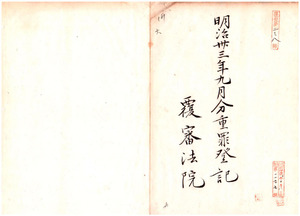 明治卅三年九月分重罪登記
覆審法院